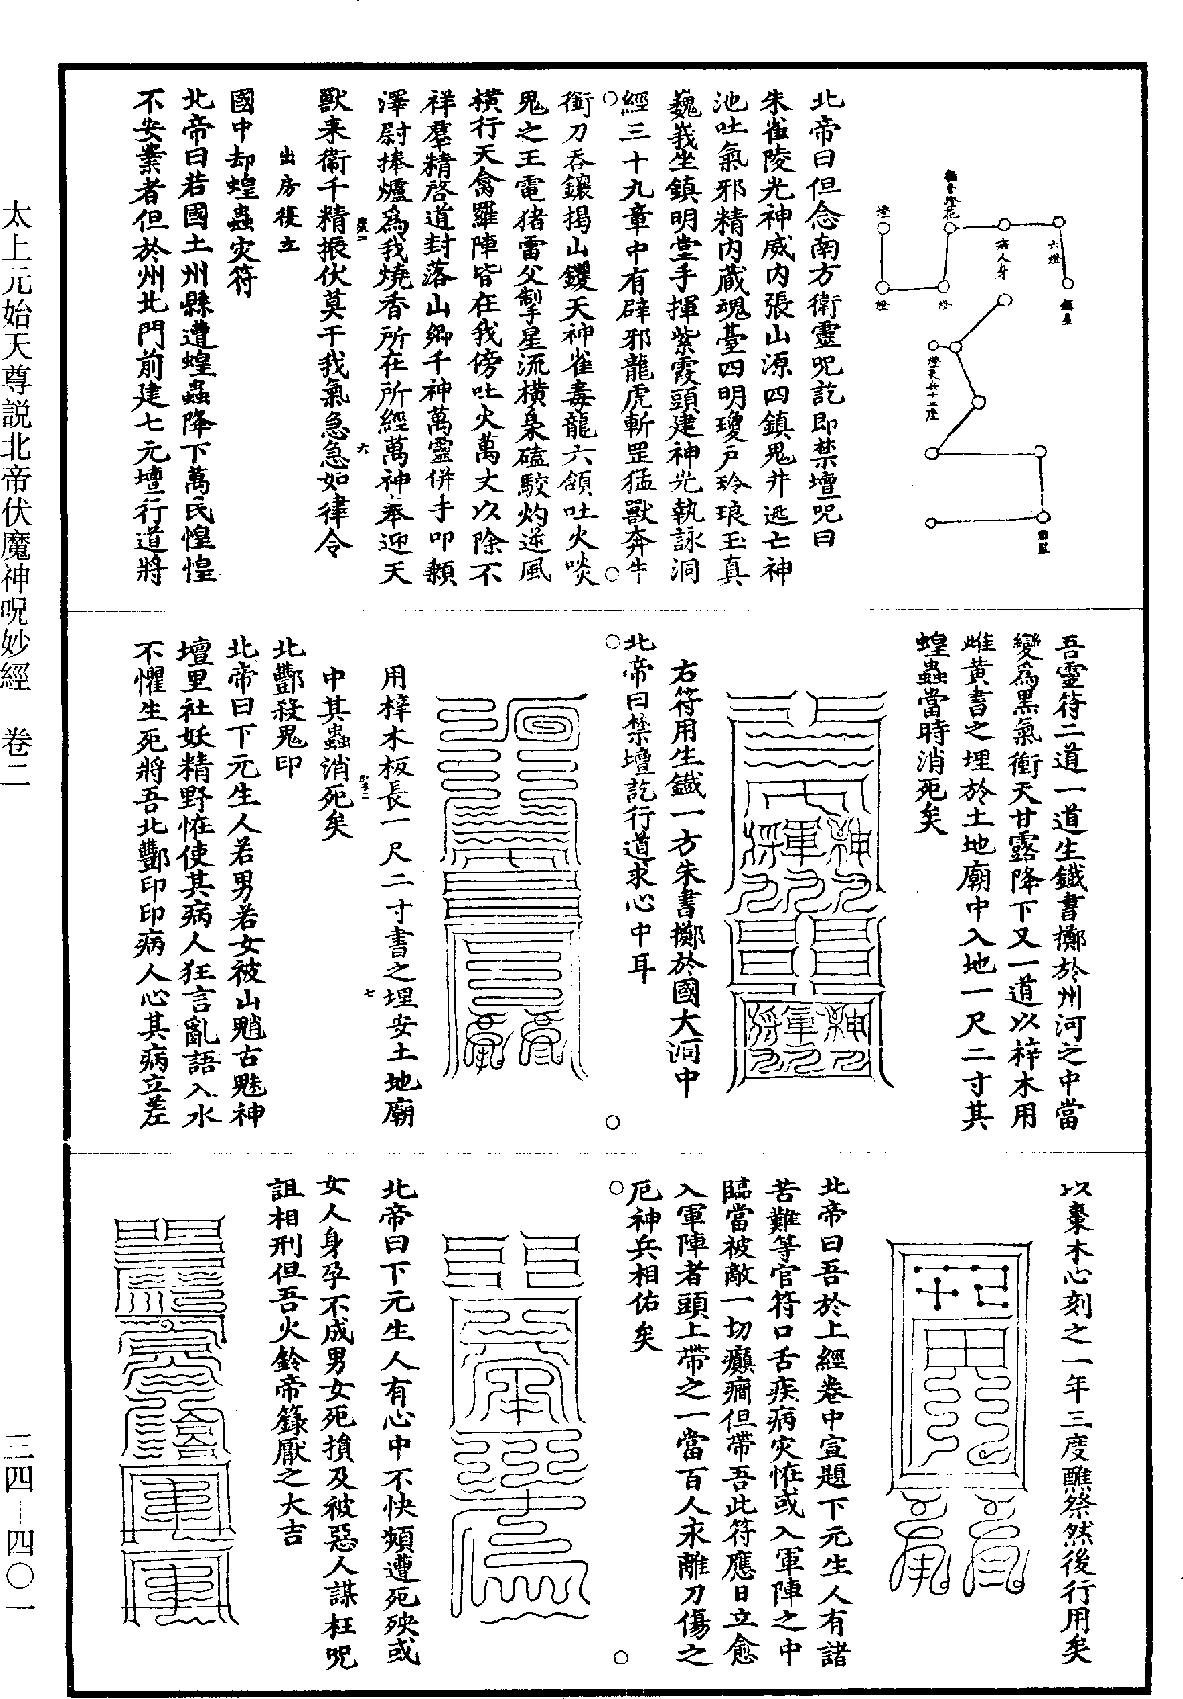 北帝曰但念南方衛靈呪訖即禁壇呪曰
朱雀陵光神威內張山源四鎮鬼井逃亡神
池吐氣邪精內藏魂臺四明瓊户玲琅玉真
巍峩坐鎮明堂手揮紫霞頭建神光執詠洞
經三十九章中有辟邪龍虎斬罡猛獸奔牛
銜刀吞鑲揭山钁天神雀毒龍六頷吐火啖
鬼之王電猪雷父掣星流橫梟磕駮灼逆風
橫行天禽羅陣皆在我傍吐火萬丈以除不
祥羣精啓道封落山鄉千神萬靈併手叩顙
澤尉捧爐為我燒香所在所經萬神奉迎天
獸來衞千精振伏莫干我氣急急如律令
出房復立
國中却蝗蟲灾符
北帝曰若國土州縣遭蝗蟲降下萬民惶惶
不安業者但於州北門前建七元壇行道將
吾靈符二道一道生鐵書擲於州河之中當
變為黑氣衝天甘露降下又一道以梓木用
雌黃書之埋於土地廟中入地一尺二寸其
蝗蟲當時消死矣
右符用生鐵一方朱書擲於國大河中
北帝曰禁壇訖行道求心中耳
用梓木板長一尺二寸書之埋安土地廟
中其蟲消死矣
北酆殺鬼印
北帝曰下元生人若男若女被山魈古魅神
壇里社妖精野恠使其病人狂言亂語入水
不懼生死將吾北酆印印病人心其病立差
以棗木心刻之一年三度醮祭然後行用矣
北帝曰吾於上經卷中宣題下元生人有諸
苦難等官符口舌疾病灾恠或入軍陣之中
臨當被敵一切癲癎但帶吾此符應日立愈
入軍陣者頭上帶之一當百人永離刀傷之
厄神兵相佑矣
北帝曰下元生人有心中不快頻遭死殃或
女人身孕不成男女死損及被惡人謀枉呪
詛相刑但吾火鈴帝籙厭之大吉
太上元始天尊説北帝伏魔神呪妙經 卷二
三四－四〇一